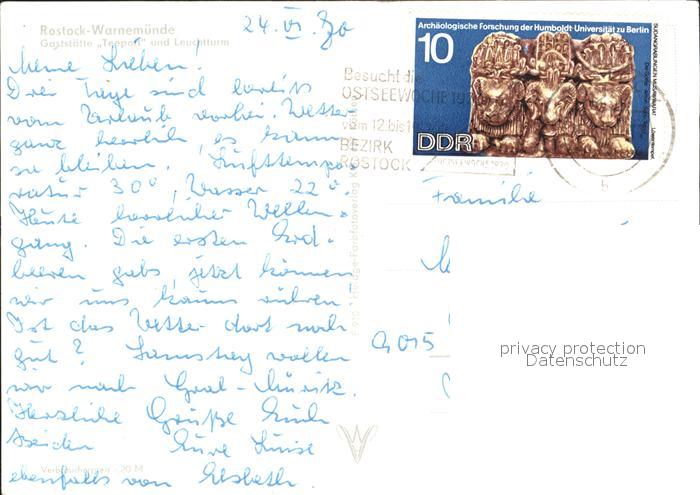 Rostock-Warnemünde
Gaststätte „Teepott" und Leuchtturm
24. VI. 70
Meine Lieben!
Drei Tage sind bereits
vom Urlaub vorbei. Wetter
ganz herrlich, es kann
so bleiben. Lufttempe-
ratur 30°, Wasser 22°.
Heute herrlicher Wellen-
gang. Die ersten Erd-
beeren gabs, jetzt können
wir uns kaum rühren!
Ist das Wetter dort auch
gut? Samstag wollen
wir nach Graal-Müritz.
Herzliche Grüße Euch
beiden Eure Luise
ebenfalls von Elsbeth.
Verbraucherpreis -,20 M
Archäologische Forschung der Humboldt-Universität zu Berlin
10
DDR
Besucht die
OSTSEEWOCHE
vom 12. bis
BEZIRK
ROSTOCK
Familie
9015
privacy protection
Datenschutz